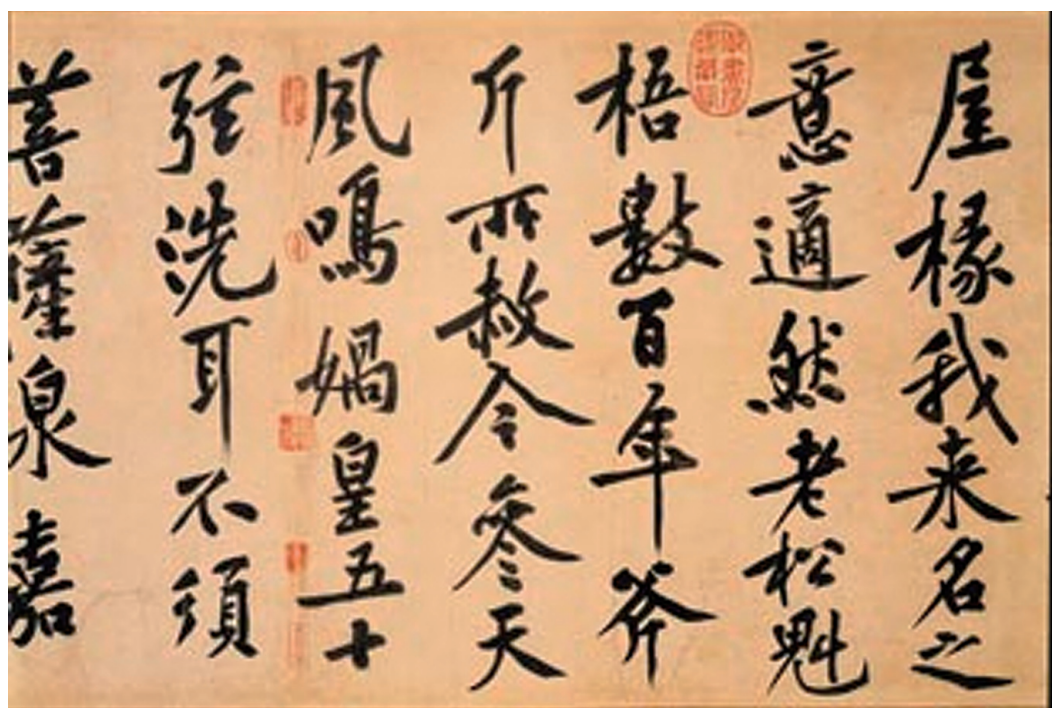 屋椽我来名之
意適然老松魁
梧數百年斧
斤所赦今參天
風鳴媧皇五十
弦洗耳不須
菩薩泉嘉